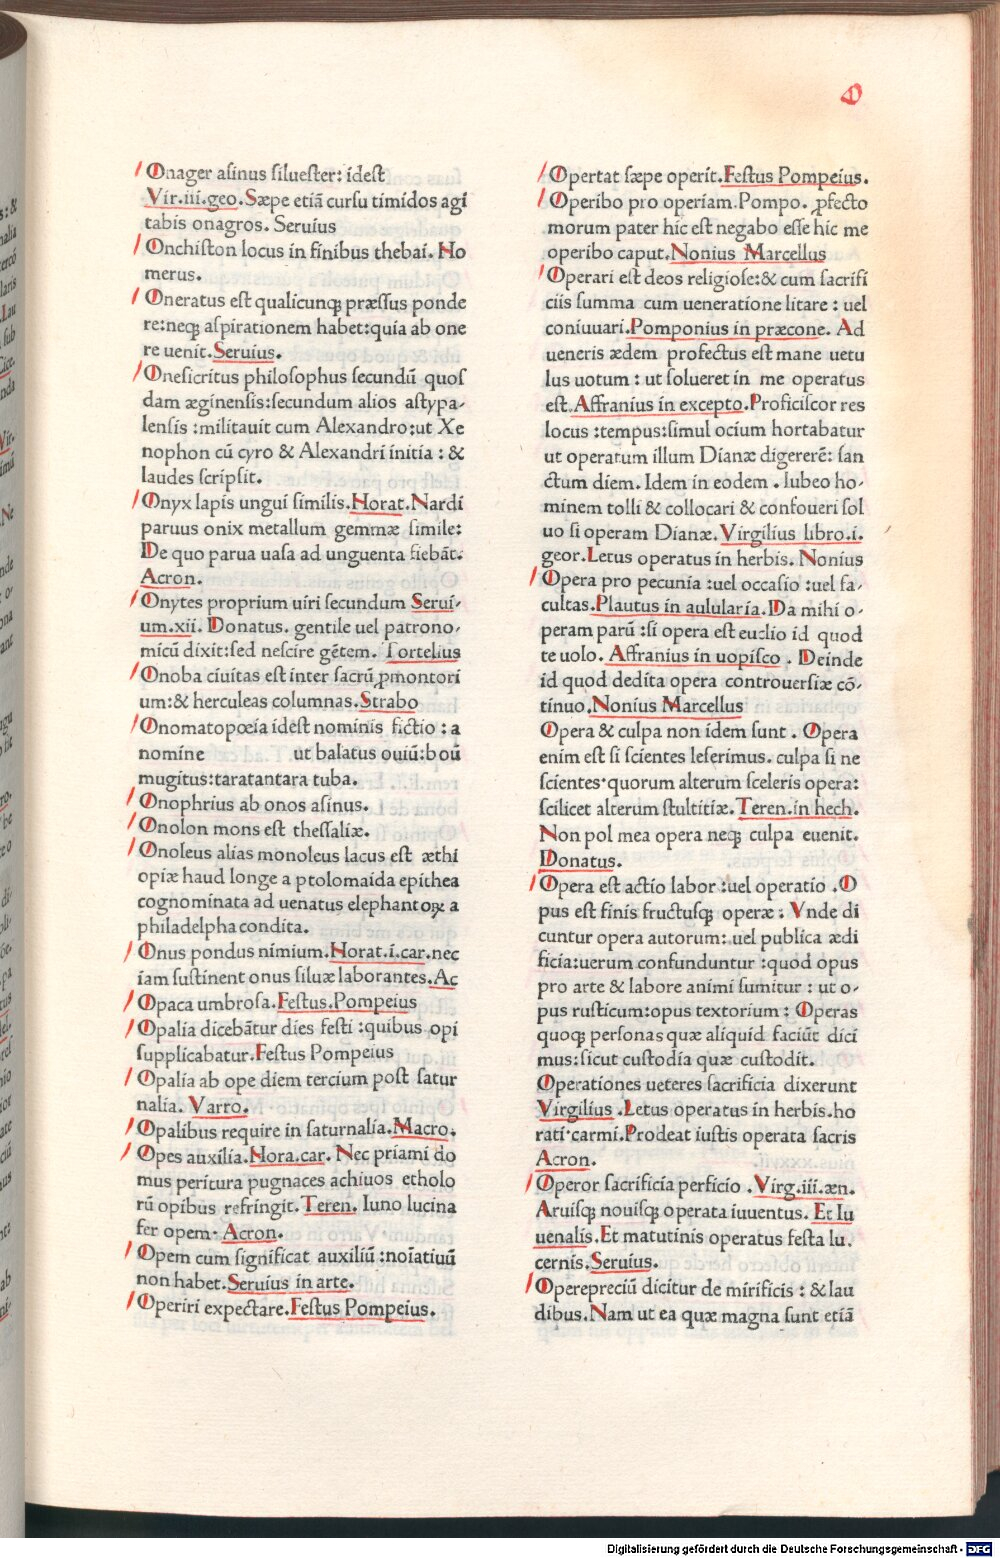 O
Onager asinus siluester: idest
Vir.iii.geo. Sæpe etiã cursu timidos agi
tabis onagros. Seruius
Onchiston locus in finibus thebai. Ho
merus.
Oneratus est qualicunqꝫ præssus ponde
re: neqꝫ aspirationem habet: quia ab one
re uenit. Seruius.
Onesicritus philosophus secundũ quos
dam æginensis: secundum alios astypa-
lensis : militauit cum Alexandro: ut Xe
nophon cũ cyro & Alexandri initia : &
laudes scripsit.
Onyx lapis ungui similis. Horat. Nardi
paruus onix metallum gemmæ simile:
De quo parua uasa ad unguenta fiebãt.
Acron.
Onytes proprium uiri secundum Serui-
um.xii. Donatus. gentile uel patrono-
micũ dixit: sed nescire gẽtem. Tortelius
Onoba ciuitas est inter sacrũ ꝓmontori
um: & herculeas columnas. Strabo
Onomatopœia idest nominis fictio : a
nomine ut balatus ouiũ: boũ
mugitus: taratantara tuba.
Onophrius ab onos asinus.
Onolon mons est thessaliæ.
Onoleus alias monoleus lacus est æthi
opiæ haud longe a ptolomaida epithea
cognominata ad uenatus elephantoꝝ a
philadelpha condita.
Onus pondus nimium. Horat.i.car. nec
iam sustinent onus siluæ laborantes. Ac
Opaca umbrosa. Festus. Pompeius
Opalia dicebãtur dies festi : quibus opi
supplicabatur. Festus Pompeius
Opalia ab ope diem tercium post satur
nalia. Varro.
Opalibus require in saturnalia. Macro.
Opes auxilia. Hora.car. Nec priami do
mus peritura pugnaces achiuos etholo
rũ opibus refringit. Teren. Iuno lucina
fer opem. Acron.
Opem cum significat auxiliũ : noĩatiuũ
non habet. Seruius in arte.
Operiri expectare. Festus Pompeius.
Opertat sæpe operit. Festus Pompeius.
Operibo pro operiam. Pompo. ꝓfecto
morum pater hic est negabo esse hic me
operibo caput. Nonius Marcellus
Operari est deos religiose: & cum sacrifi
ciis summa cum ueneratione litare : uel
coniuuari. Pomponius in præcone. Ad
ueneris ædem profectus est mane uetu
lus uotum : ut solueret in me operatus
est. Affranius in excepto. Proficiscor res
locus : tempus: simul ocium hortabatur
ut operatum illum Dianæ digererẽ: san
ctum diem. Idem in eodem . Iubeo ho-
minem tolli & collocari & confoueri sol
uo si operam Dianæ. Virgilius libro.i.
geor. Letus operatus in herbis. Nonius
Opera pro pecunia : uel occasio : uel fa-
cultas. Plautus in aulularia. Da mihi o-
peram parũ : si opera est euclio id quod
te uolo. Affranius in uopisco . Deinde
id quod dedita opera controuersiæ cõ-
tinuo. Nonius Marcellus
Opera & culpa non idem sunt . Opera
enim est si scientes leserimus. culpa si ne
scientes. quorum alterum sceleris opera:
scilicet alterum stultitiæ. Teren.in hech.
Non pol mea opera neqꝫ culpa euenit.
Donatus.
Opera est actio labor : uel operatio . O
pus est finis fructusqꝫ operæ : Vnde di
cuntur opera autorum: uel publica ædi
ficia: uerum confunduntur : quod opus
pro arte & labore animi sumitur : ut o-
pus rusticum: opus textorium : Operas
quoqꝫ personas quæ aliquid faciũt dici
mus: sicut custodia quæ custodit.
Operationes ueteres sacrificia dixerunt
Virgilius . Letus operatus in herbis. ho
rati.carmi. Prodeat iustis operata sacris
Acron.
Operor sacrificia perficio . Virg.iii.æn.
Aruisqꝫ nouisqꝫ operata iuuentus. Et Iu
uenalis. Et matutinis operatus festa lu.
cernis. Seruius.
Operepreciũ dicitur de mirificis : & lau
dibus. Nam ut ea quæ magna sunt etiã
Digitalisierung gefördert durch die Deutsche Forschungsgemeinschaft - DFG